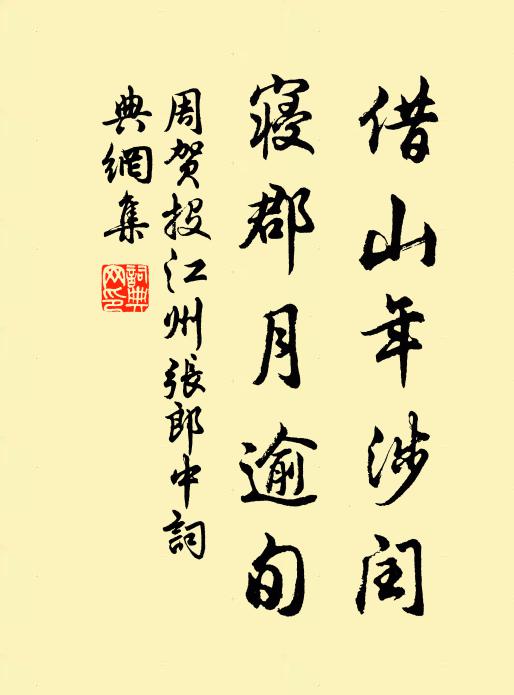 借山年涉闰
寝郡月逾旬
周贺投江州張郎中詞
典網集
詞典网印